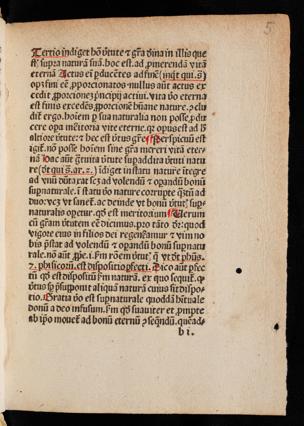 5
Tertio indiget hō v̄tute & grā dīna in illis que
sūt supra naturā suā. hoc est. ad p̄merendā vitā
eternā Actus eī ꝓducētes ad finē (inqt qui. s̄)
op̄z sint eē ꝓporcionatos nullus aūt actus ex
cedit ꝓporcionez p̄ncipij actiui. vita ꝟo eterna
est finis excedēs ꝓporcionē hūane nature. ꝯclu
dit ergo. hoīem ꝑ sua naturalia non posse ꝓdu
cere opa meritoria vite eterne. qꝛ opus est ad h̄
altiore v̄tute: & hoc est v̄tus grē Perspicuū est
igit̄. nō posse hoīem sine grā mereri vitā eter-
nā hac aūt gr̄tuita v̄tute supaddita v̄tuti natu
re (vt qui. s̄. ar. 2.) indiget in statu nature ītegre
ad vnū dūtaxat scꝫ ad volendū & opandū bonū
supnaturale. ī statu ꝟo nature corrupte q̄stū ad
duo: vcꝫ vt sanet̄. ac deinde vt bonū v̄tut̄ sup-
naturalis operet̄. qd est meritorium Uerum
cū grām v̄tutem eē dicimus. pro tāto dr̄: quod
vigore eius in filios dei regenāmur & vim no-
bis p̄stat ad volendū & opandū bonū supnatu
rale. nō aūt ꝓprie. i. ẜm rōem v̄tut̄. q̄ vt dr̄ phūs.
7. phisicorū. est dispositio ꝑfecti. Dico aūt ꝑfec
tū qd est dispositū ẜm naturā. ex quo sequit̄. q̄
v̄tus sꝑ p̄supponit aliquā naturā cuius sit dispo-
tio. Gratia ꝟo est supnaturale quoddā hītuale
donū a deo infusum. ẜm qd suauiter et prompte
ab ip̄o mouet̄ ad bonū eternū ꝯseqn̄dū. quēad-
b i.